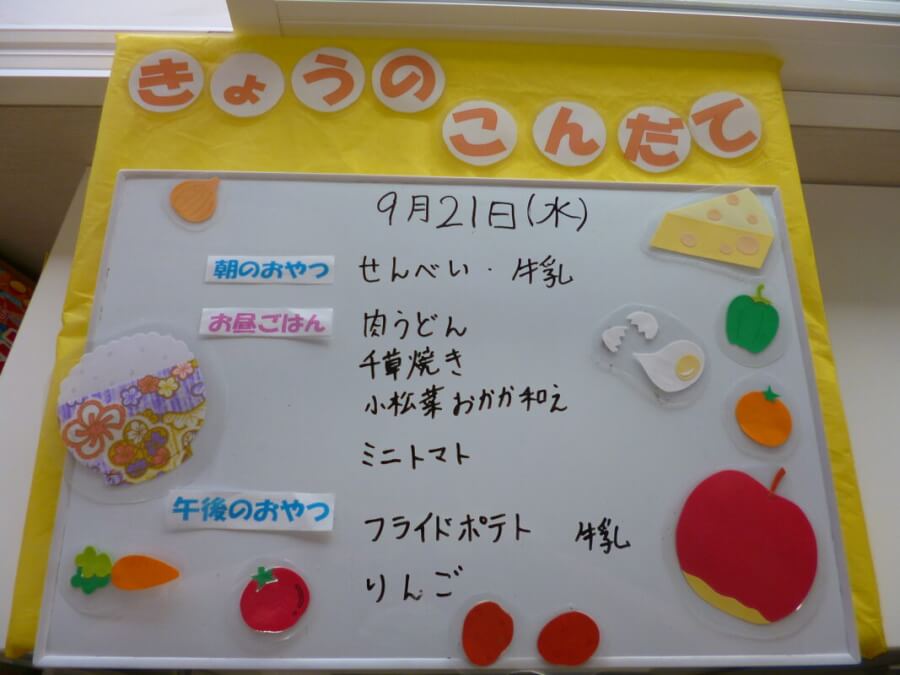 きょうの
こんだて
9月21日(水)
朝のおやつ せんべい・牛乳
お昼ごはん 肉うどん
千草焼き
小松菜おかか和え
ミニトマト
午後のおやつ フライドポテト 牛乳
りんご